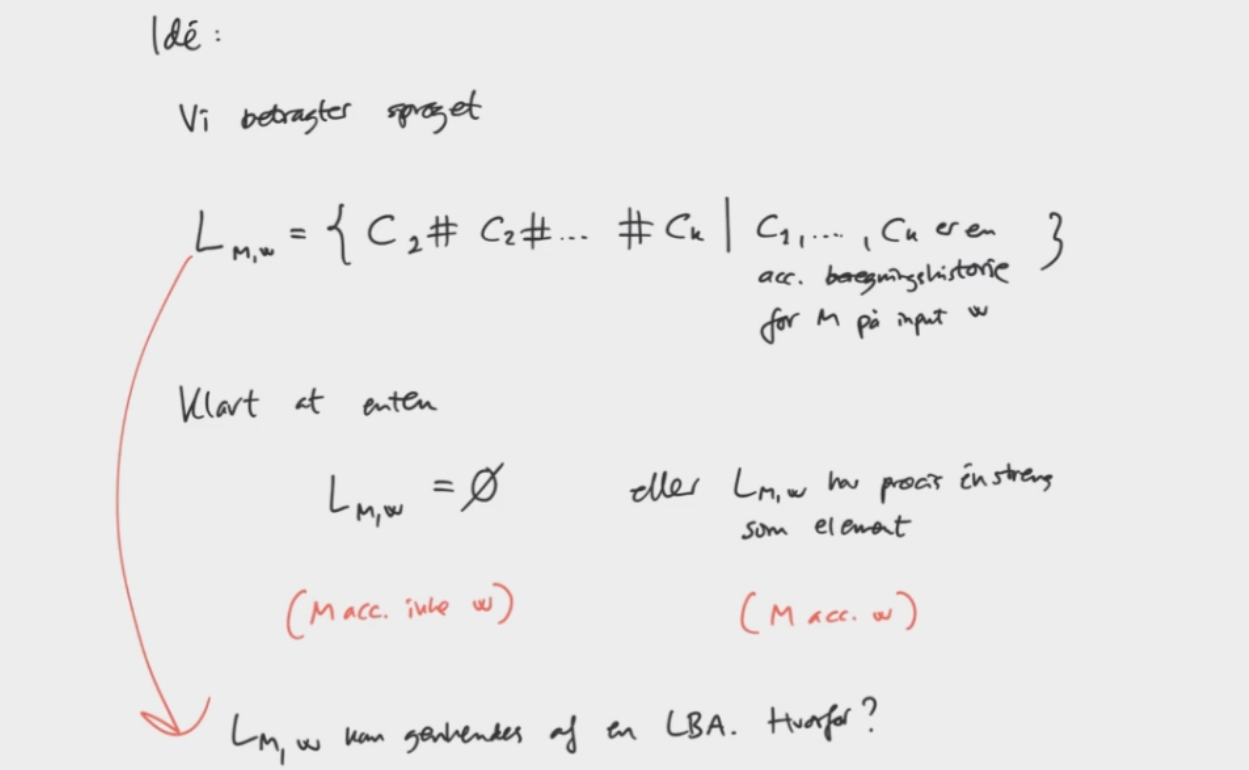 Idé:
Vi betragter sproget
L_{M,w} = { C_2 # C_2 # ... # C_k | C_1, ..., C_k er en }
acc. beregningshistorie
for M på input w
Klart at enten
L_{M,w} = ∅ eller L_{M,w} har præcis én streng
som element
(M acc. ikke w) (M acc. w)
L_{M,w} kan genkendes af en LBA. Hvorfor?